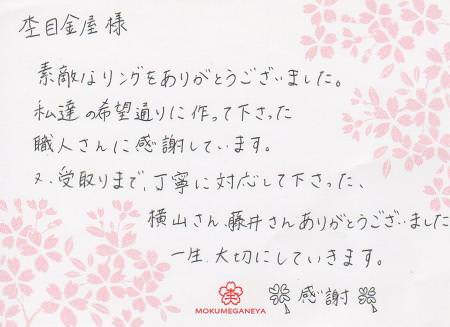 杢目金屋様
素敵なリングをありがとうございました。
私達の希望通りに作って下さった
職人さんに感謝しています。
又、受取りまで、丁寧に対応して下さった、
横山さん、藤井さんありがとうございました
一生、大切にしていきます。
感謝
MOKUMEGANEYA